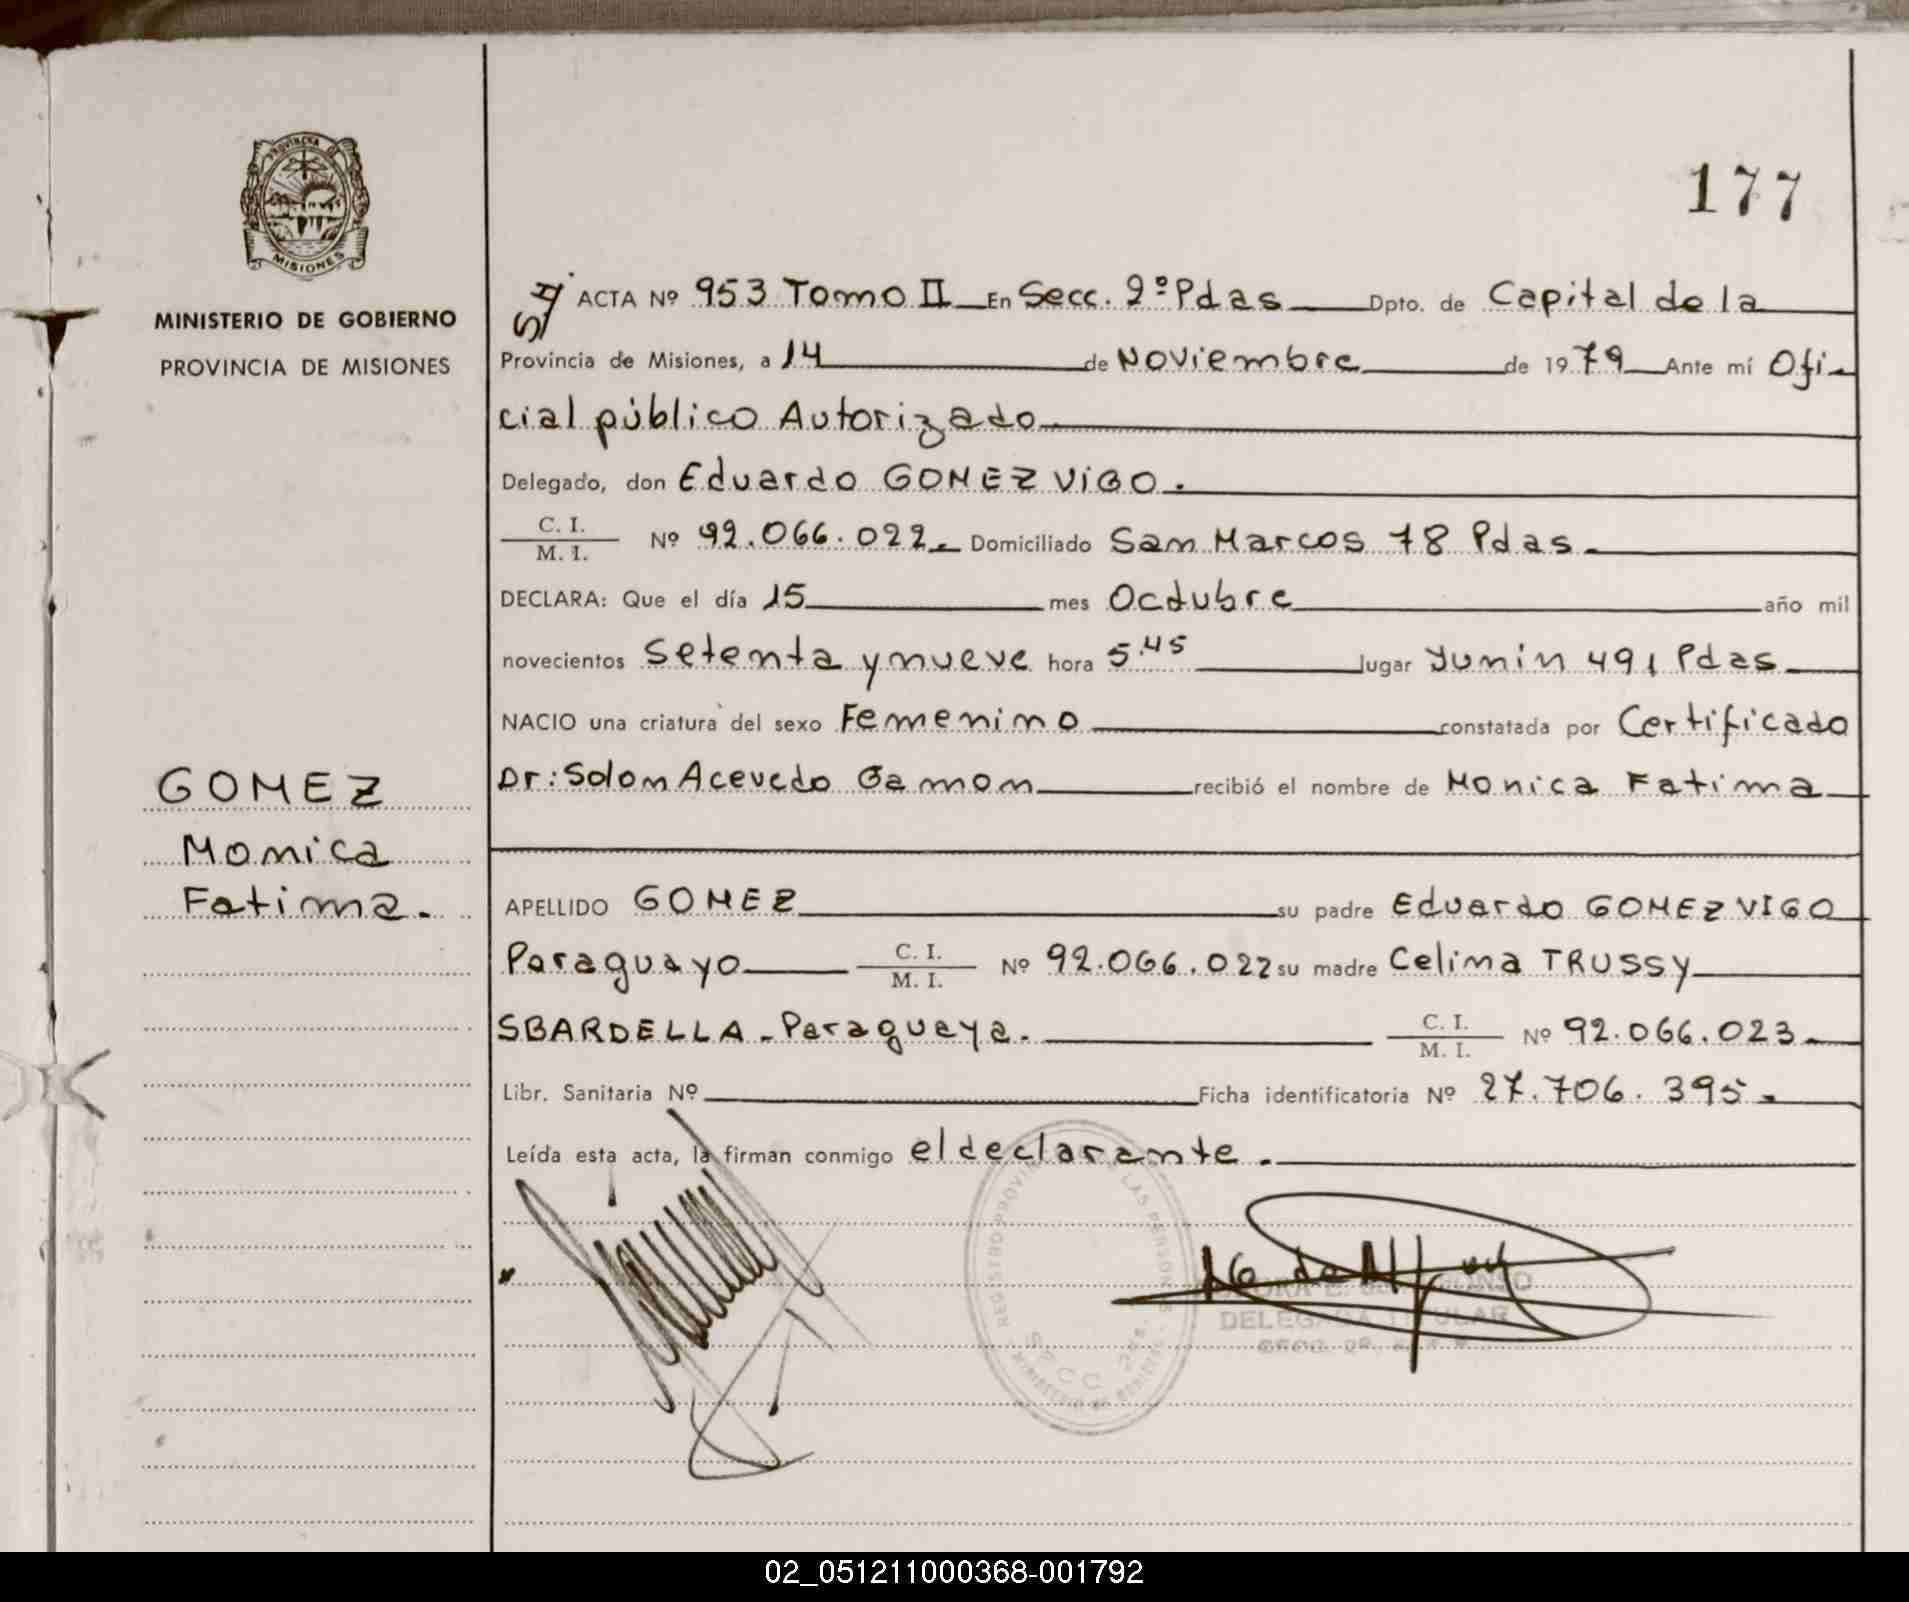 177
PROVINCIA DE
MISIONES
MINISTERIO DE GOBIERNO
PROVINCIA DE MISIONES
ACTA Nº 953 Tomo II En Secc. 2º Pdas Dpto. de Capital de la
Provincia de Misiones, a 14 de Noviembre de 1979 Ante mí Ofi-
cial público Autorizado
Delegado, don Eduardo GOMEZ VIGO.
C. I.
M. I. Nº 92.066.022 Domiciliado San Marcos 78 Pdas.
DECLARA: Que el día 15 mes Octubre año mil
novecientos Setenta y nueve hora 5.45 lugar Yunin 491 Pdas
NACIO una criatura del sexo Femenino constatada por Certificado
Dr: Solon Acevedo Gamon recibió el nombre de Monica Fatima
GOMEZ
Monica
Fatima.
APELLIDO GOMEZ su padre Eduardo GOMEZ VIGO
Paraguayo C. I.
M. I. Nº 92.066.022 su madre Celina TRUSSY
SBARDELLA - Paraguaya. C. I.
M. I. Nº 92.066.023
Libr. Sanitaria Nº Ficha identificatoria Nº 27.706.395
Leída esta acta, la firman conmigo el declarante.
DELEGADA TITULAR
02_051211000368-001792